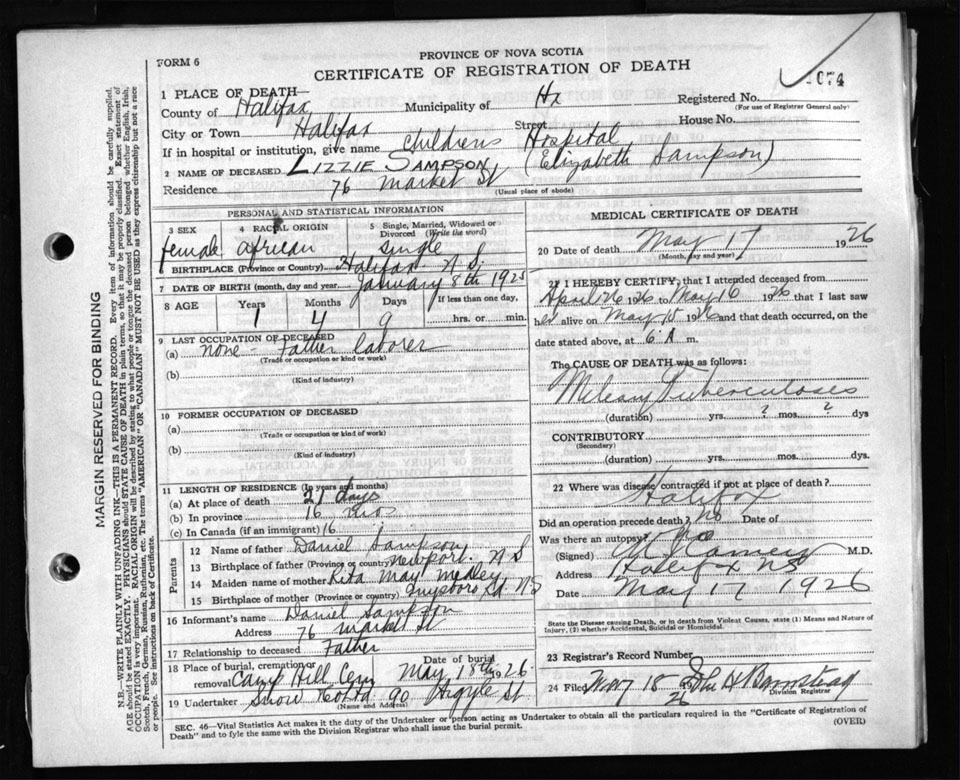 PROVINCE OF NOVA SCOTIA
FORM 6
CERTIFICATE OF REGISTRATION OF DEATH
074
1 PLACE OF DEATH—
County of Halifax Municipality of Hx Registered No.
(For use of Registrar General only)
City or Town Halifax Street House No.
If in hospital or institution, give name Childrens Hospital
2 NAME OF DECEASED LIZZIE SAMPSON (Elizabeth Sampson)
Residence 76 Market St
(Usual place of abode)
PERSONAL AND STATISTICAL INFORMATION
3 SEX 4 RACIAL ORIGIN 5 Single, Married, Widowed or Divorced (Write the word)
female african single
BIRTHPLACE (Province or Country) Halifax N.S.
7 DATE OF BIRTH (month, day and year) January 8th 1925
8 AGE Years Months Days If less than one day,
1 4 9 hrs. or min.
9 LAST OCCUPATION OF DECEASED
(a) none - Father laborer
(Trade or occupation or kind or work)
(b)
(Kind of industry)
10 FORMER OCCUPATION OF DECEASED
(a)
(Trade or occupation or kind of work)
(b)
(Kind of industry)
11 LENGTH OF RESIDENCE (In years and months)
(a) At place of death 21 days
(b) In province 16 mos
(c) In Canada (if an immigrant) 16
Parents
12 Name of father Daniel Sampson
13 Birthplace of father (Province or country) Newport. N S
14 Maiden name of mother Rita May Medley
15 Birthplace of mother (Province or country) Guysboro Rd. N S
16 Informant's name Daniel Sampson
Address 76 Market St
17 Relationship to deceased Father
18 Place of burial, cremation or removal Camp Hill Cem Date of burial May 18th 1926.
19 Undertaker Snow 90 Argyle St
(Name and Address)
MEDICAL CERTIFICATE OF DEATH
20 Date of death May 17 1926
(Month, day and year)
21 I HEREBY CERTIFY, that I attended deceased from
April 26 1926 to May 16 1926 that I last saw
her alive on May 15 1926 and that death occurred, on
date stated above, at 6 A m.
The CAUSE OF DEATH was as follows:
Miliary Tuberculoses
(duration) yrs. ? mos. ? dys
CONTRIBUTORY
(Secondary)
(duration) yrs. mos. dys
22 Where was disease contracted if not at place of death?
Halifax
Did an operation precede death? no Date of
Was there an autopsy? no
(Signed) M.D.
Address Halifax NS
Date May 17 1926
State the Disease causing Death, or in death from Violent Causes, state (1) Means and Nature of
Injury, (2) whether Accidental, Suicidal or Homicidal.
23 Registrar's Record Number
24 Filed May 18 1926 John H Barnstead
Division Registrar
SEC. 46—Vital Statistics Act makes it the duty of the Undertaker or person acting as Undertaker to obtain all the particulars required in the "Certificate of Registration of
Death" and to fyle the same with the Division Registrar who shall issue the burial permit.
(OVER)
MARGIN RESERVED FOR BINDING
N.B.—WRITE PLAINLY WITH UNFADING INK—THIS IS A PERMANENT RECORD. Every item of information should be carefully supplied.
AGE should be stated EXACTLY. PHYSICIANS should STATE CAUSE OF DEATH in plain terms, so that it may be properly classified. Exact statement of
OCCUPATION is very important. RACIAL ORIGIN will be described by stating to what people or tongue the deceased person belonged whether English, Irish,
Scotch, French, German, Russian, Ruthenian, etc. The terms "AMERICAN" OR "CANADIAN" MUST NOT BE USED as they express citizenship but not a race
or people. See instructions on back of Certificate.